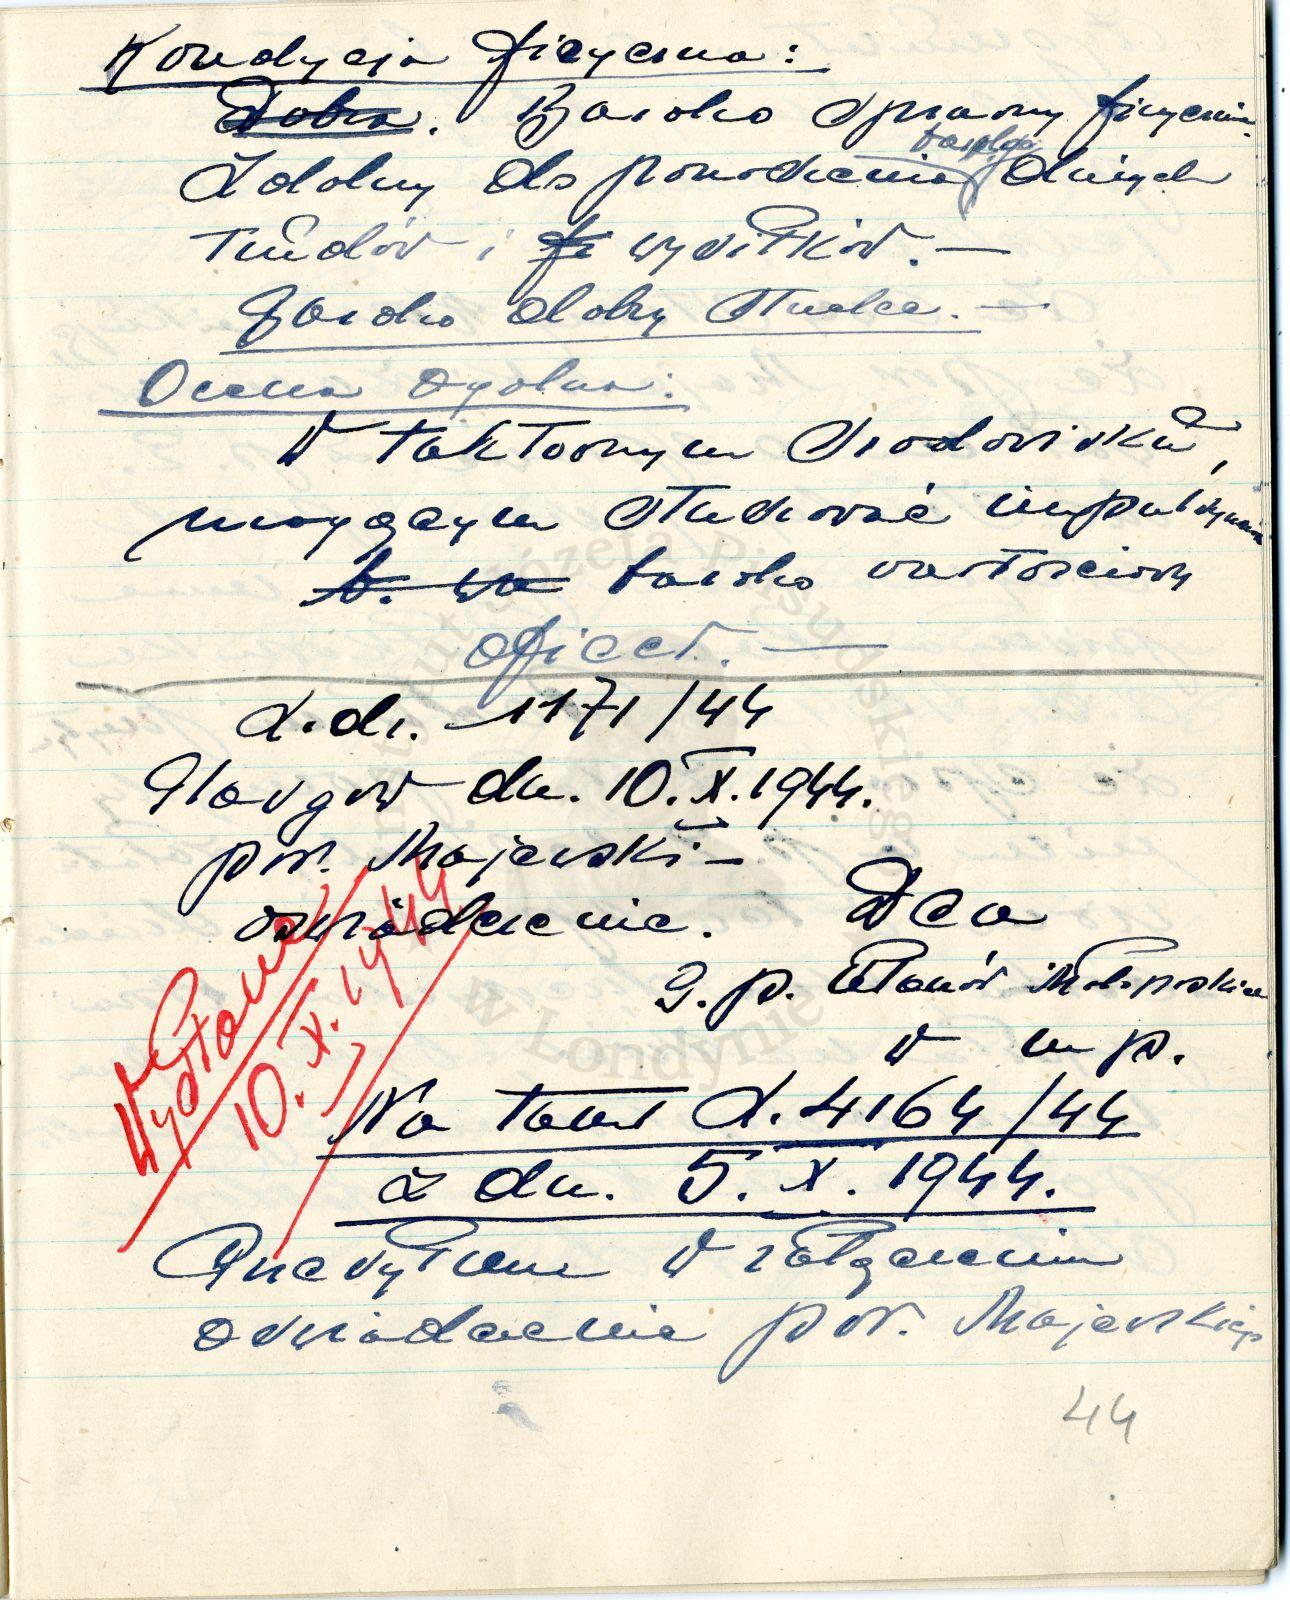 Kondycja fizyczna:
Dobra. Bardzo sprawny fizycznie.
Zdolny do ponoszenia dużych
trudów i wysiłków. —
Bardzo dobry strzelec. —
Ocena ogólna:
W taktownym środowisku,
mogącym studzować impulsywnie
b. wa bardzo wartościowy
oficer. —
L.dz. 1171/44
Glasgow dn. 10.X.1944.
por. Majewski —
oświadczenie.
Dca
9. p. Ułanów Małopolskich
w m p.
Wysłane
10.X.1944
Na tamt L. 4164/44
z dn. 5.X.1944.
Przesyłam w załączeniu
oświadczenie por. Majewskiego
44
Instytut Józefa Piłsudskiego
w Londynie